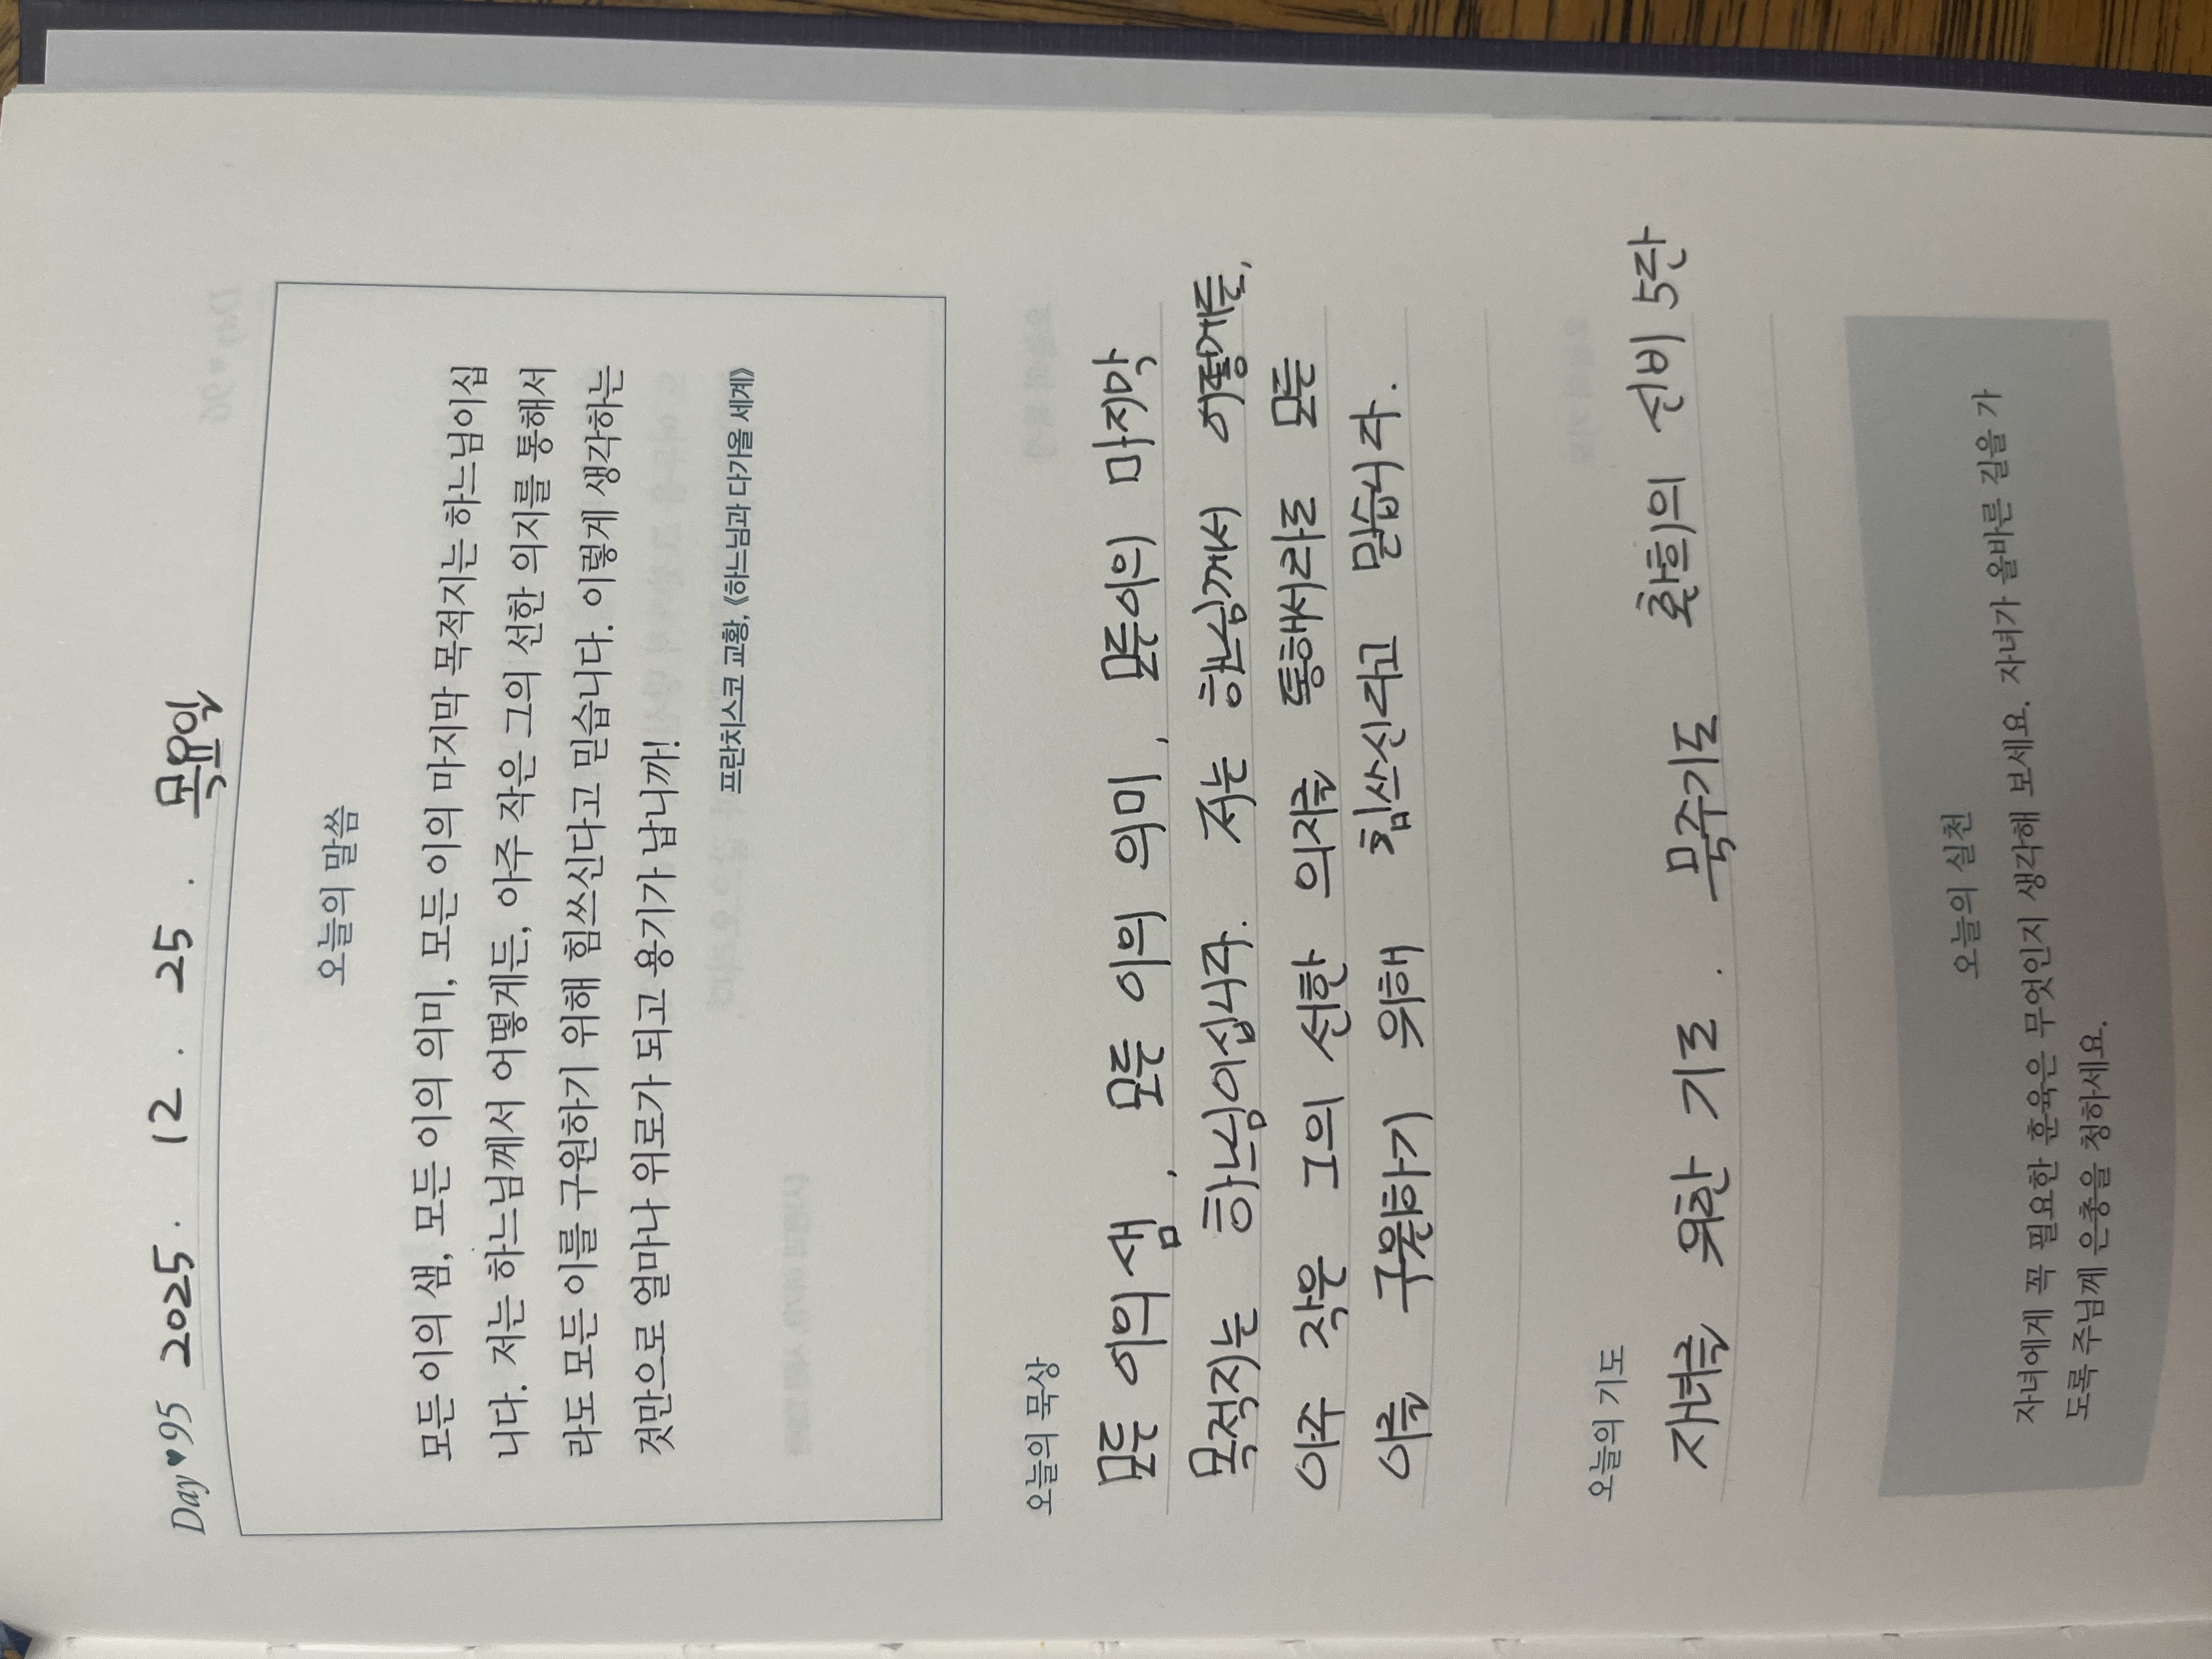 Day♥95 2025. 12. 25. 목요일
오늘의 말씀
모든 이의 샘, 모든 이의 의미, 모든 이의 마지막 목적지는 하느님이십
니다. 저는 하느님께서 어떻게든, 아주 작은 그의 선한 의지를 통해서
라도 모든 이를 구원하기 위해 힘쓰신다고 믿습니다. 이렇게 생각하는
것만으로 얼마나 위로가 되고 용기가 납니까!
프란치스코 교황, 《하느님과 다가올 세계》
오늘의 묵상
모든 이의 샘, 모든 이의 의미, 모든이의 마지막
목적지는 하느님이십니다. 저는 하느님께서 어떻게든,
아주 작은 그의 선한 의지를 통해서라도 모든
이를 구원하기 위해 힘쓰신다고 믿습니다.
오늘의 기도
자녀를 위한 기도. 묵주기도 환희의 신비 5단
오늘의 실천
자녀에게 꼭 필요한 훈육은 무엇인지 생각해 보세요. 자녀가 올바른 길을 가
도록 주님께 은총을 청하세요.